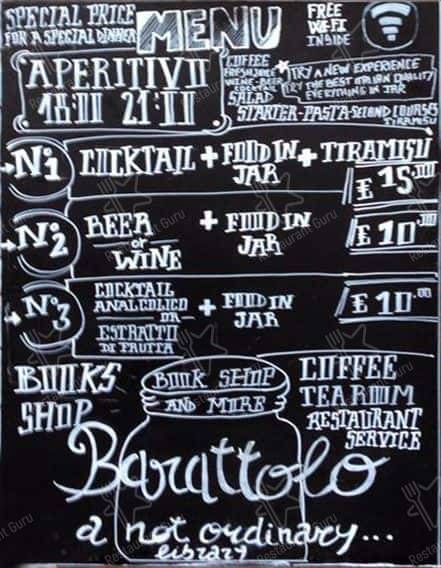 SPECIAL PRICE
FOR A SPECIAL DINNER
MENU
FREE
WI-FI
INSIDE
APERITIVO
18:00 21:00
COFFEE
FRESH JUICE
WINE-BEER
COCKTAIL
SALAD
TRY A NEW EXPERIENCE
TRY THE BEST ITALIAN QUALITY
EVERYTHING IN JAR
STARTER-PASTA-SECOND COURSES
TIRAMISU
N°1 COCKTAIL + FOOD IN JAR + TIRAMISU
£ 15.00
N°2 BEER or WINE + FOOD IN JAR
£ 10.00
N°3 COCKTAIL ANALCOLICO OR ESTRATTO DI FRUTTA + FOOD IN JAR
£ 10.00
BOOKS
SHOP
BOOK SHOP
AND MORE
COFFEE
TEAROOM
RESTAURANT
SERVICE
Barattolo
a not ordinary...
library
Restaurant Guru